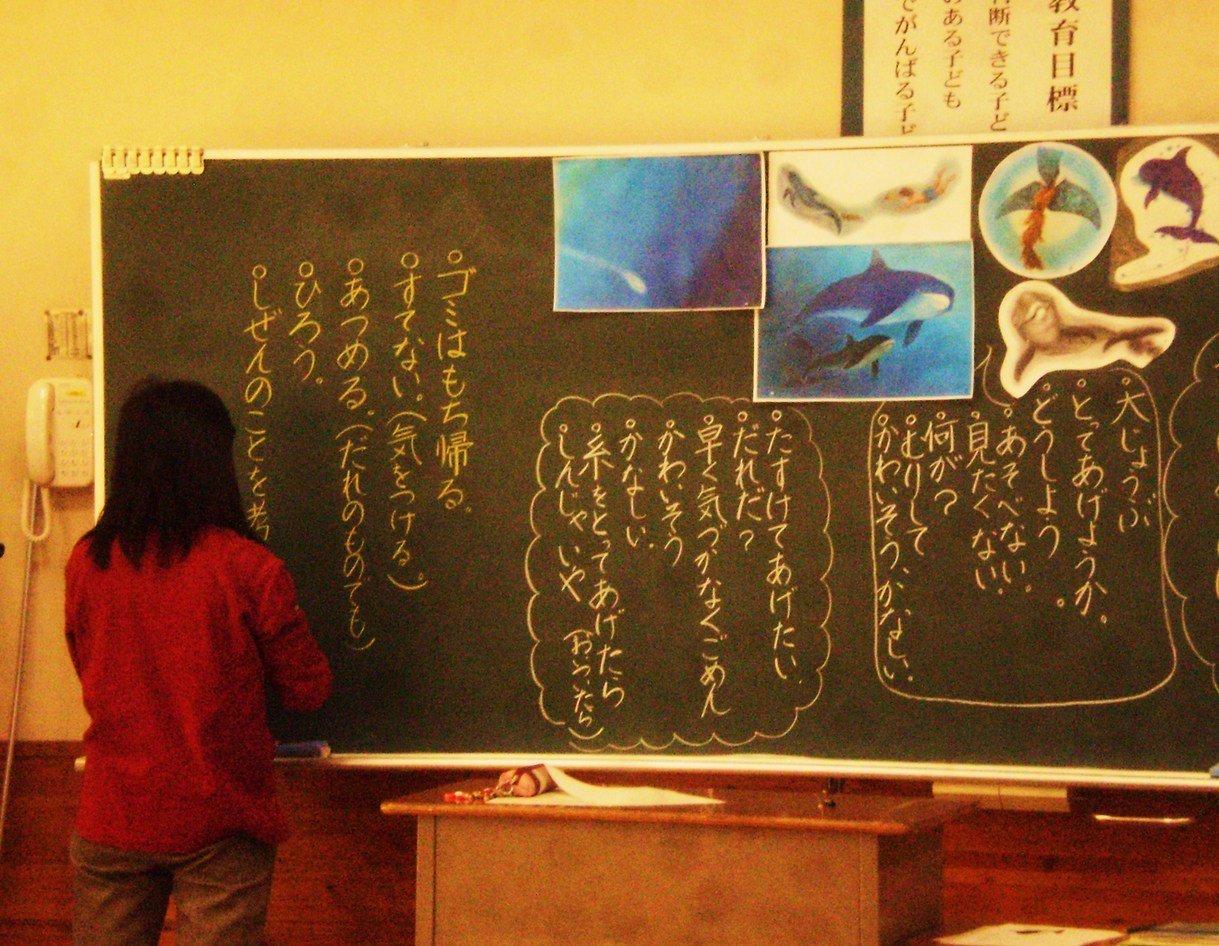 教育目標
断できる子ど
のある子ども
でがんばる子ど
○大じょうぶ
○とってあげようか。
○どうしよう。
○あそべない。
○見たくない。
何が?
○むりして
○かわいそう、かなしい。
○たすけてあげたい。
○だれだ?
○早く気づかなくごめん
○かわいそう
○かなしい。
○糸をとってあげたら
○しんじゃいや
○ゴミはもち帰る。
○すてない。(気をつける)。
○あつめる。(だれのものでも)
○ひろう。
○しぜんのことを考